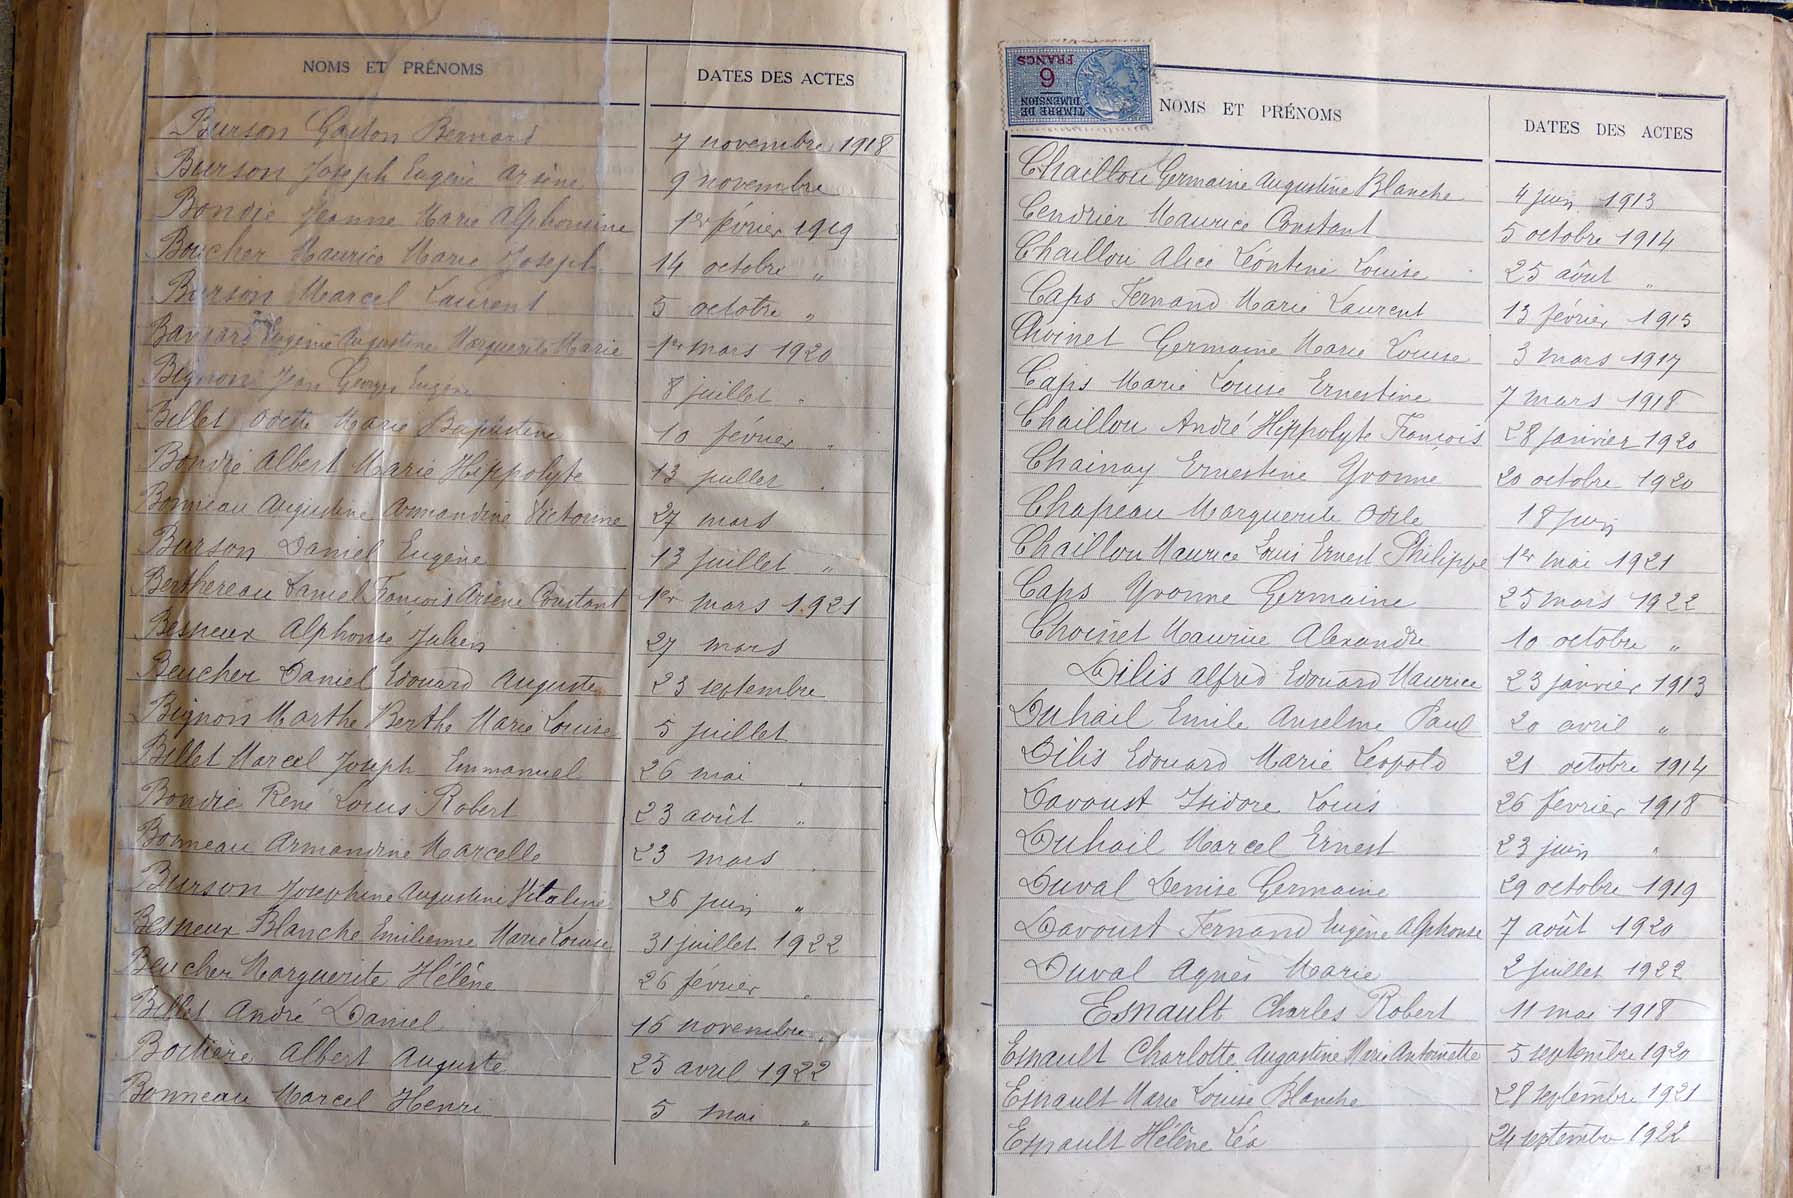 NOMS ET PRÉNOMS DATES DES ACTES
Burson Gaston Bernard 7 novembre 1918
Burson Joseph Eugène Arsène 9 novembre
Bondie Jeanne Marie Alphonsine 1er février 1919
Boucher Maurice Marie Joseph 14 octobre "
Burson Marcel Laurent 5 octobre "
Eugénie Augustine Marguerite Marie 1er mars 1920
Bignon Jean Georges Eugène 8 juillet "
Billet Odette Marie Baptistine 10 février "
Bondie Albert Marie Hippolyte 13 juillet "
Bonneau Augustine Armandine Victorine 27 mars
Burson Daniel Eugène 13 juillet "
Berthereau Daniel François Arsène Constant 1er mars 1921
Besneux Alphonse Julien 27 mars
Beucher Daniel Edouard Auguste 23 septembre
Bignon Marthe Berthe Marie Louise 5 juillet
Billet Marcel Joseph Emmanuel 26 mai "
Bondie René Louis Robert 23 août "
Bonneau Armandine Marcelle 23 mars "
Burson Josephine Augustine Vitaline 26 juin "
Besneux Blanche Emilienne Marie Louise 31 juillet 1922
Beucher Marguerite Hélène 26 février "
Billet André Daniel 16 novembre "
Boitière Albert Auguste 23 avril 1922
Bonneau Marcel Henri 5 mai "
TIMBRE DE DIMENSION
6
FRANCS
NOMS ET PRÉNOMS DATES DES ACTES
Chaillou Germaine Augustine Blanche 4 juin 1913
Cendrier Maurice Constant 5 octobre 1914
Chaillou Alice Léontine Louise 25 août "
Caps Fernand Marie Laurent 13 février 1915
Choinet Germaine Marie Louise 3 mars 1917
Caps Marie Louise Ernestine 7 mars 1918
Chaillou André Hippolyte François 28 janvier 1920
Chainay Ernestine Yvonne 20 octobre 1920
Chapeau Marguerite Odile 18 juin
Chaillou Maurice Louis Ernest Philippe 1er mai 1921
Caps Yvonne Germaine 25 mars 1922
Choinet Maurice Alexandre 10 octobre "
Dilis Alfred Edouard Maurice 23 janvier 1913
Duhail Emile Anselme Paul 20 avril "
Dilis Edouard Marie Léopold 21 octobre 1914
Davoust Isidore Louis 26 février 1918
Duhail Marcel Ernest 23 juin "
Duval Denise Germaine 29 octobre 1919
Davoust Fernand Eugène Alphonse 7 août 1920
Duval Agnès Marie 2 juillet 1922
Esnault Charles Robert 11 mai 1918
Esnault Charlotte Augustine Marie Antoinette 5 septembre 1920
Esnault Marie Louise Blanche 28 septembre 1921
Esnault Hélène Léa 24 septembre 1922